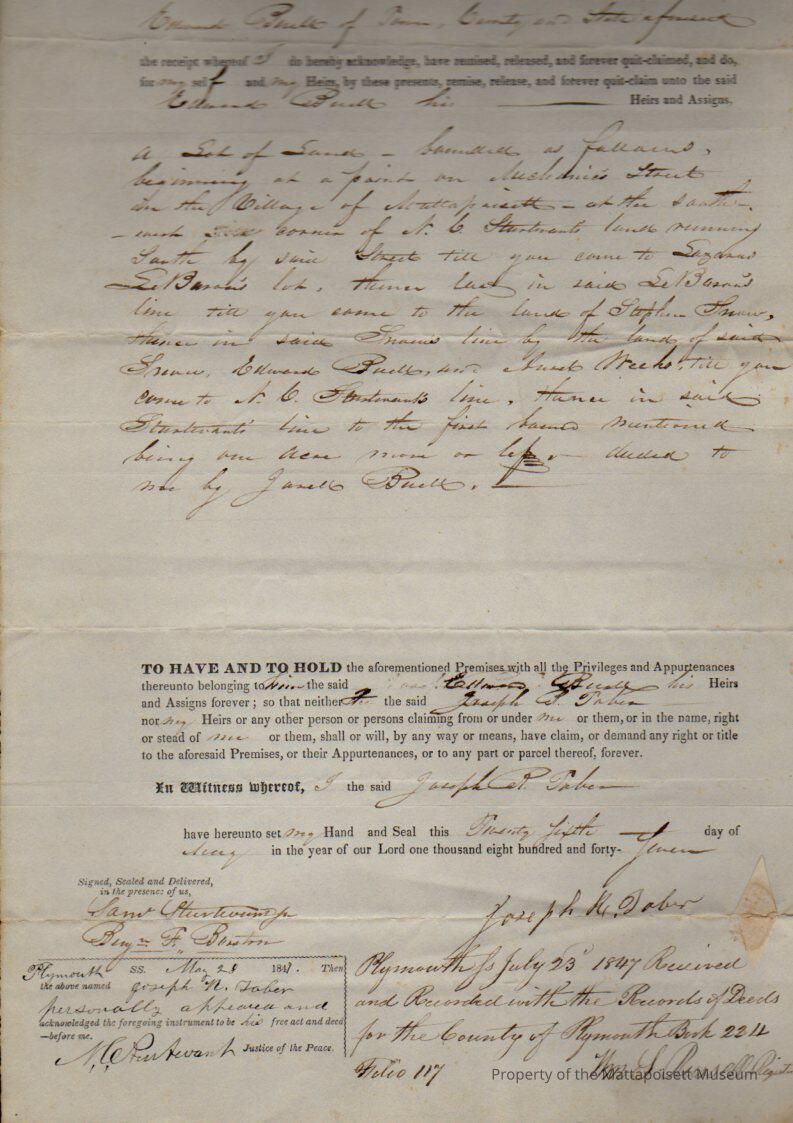 Edward Buell of Town, County and State aforesaid
the receipt whereof I do hereby acknowledge, have remised, released, and forever quit-claimed, and do,
for my self and my Heirs, by these presents, remise, release, and forever quit-claim unto the said
Edward Buell his Heirs and Assigns,
A Lot of Land – bounded as follows,
beginning at a point on Mechanics Street
in the Village of Mattapoisett – at the south-
-west corner of N. C Sturtevants land running
South by said Street till you come to Lazarus
LeBarons lot, thence in said LeBaron's
line till you come to the land of Stephen Snow,
thence in said Snows line by the land of said
Snow, Edward Buell, and Weeks, till you
come to N. C. Sturtevants line, thence in said
Sturtevants line to the first bound mentioned
being one acre more or less – deeded to
me by Buell.
TO HAVE AND TO HOLD the aforementioned Premises with all the Privileges and Appurtenances
thereunto belonging to him the said Edward Buell his Heirs
and Assigns forever; so that neither I the said Joseph R. Taber
nor my Heirs or any other person or persons claiming from or under me or them, or in the name, right
or stead of me or them, shall or will, by any way or means, have claim, or demand any right or title
to the aforesaid Premises, or their Appurtenances, or to any part or parcel thereof, forever.
In Witness whereof, I the said Joseph R. Taber
have hereunto set my Hand and Seal this Twenty sixth day of
May in the year of our Lord one thousand eight hundred and forty- Seven
Signed, Sealed and Delivered,
in the presence of us,
Joseph R. Taber
Saml Sturtevant Jr
Benjn F. Barstow
Plymouth SS. May 1847. Then
the above named Joseph R. Taber
personally appeared and
acknowledged the foregoing instrument to be his free act and deed
—before me.
N. C. Sturtevant Justice of the Peace.
Plymouth Ss July 23d 1847 Received
and Recorded with the Records of Deeds
for the County of Plymouth Book 224
Folio 117
Wm S. Russell Register
Property of the Mattapoisett Museum